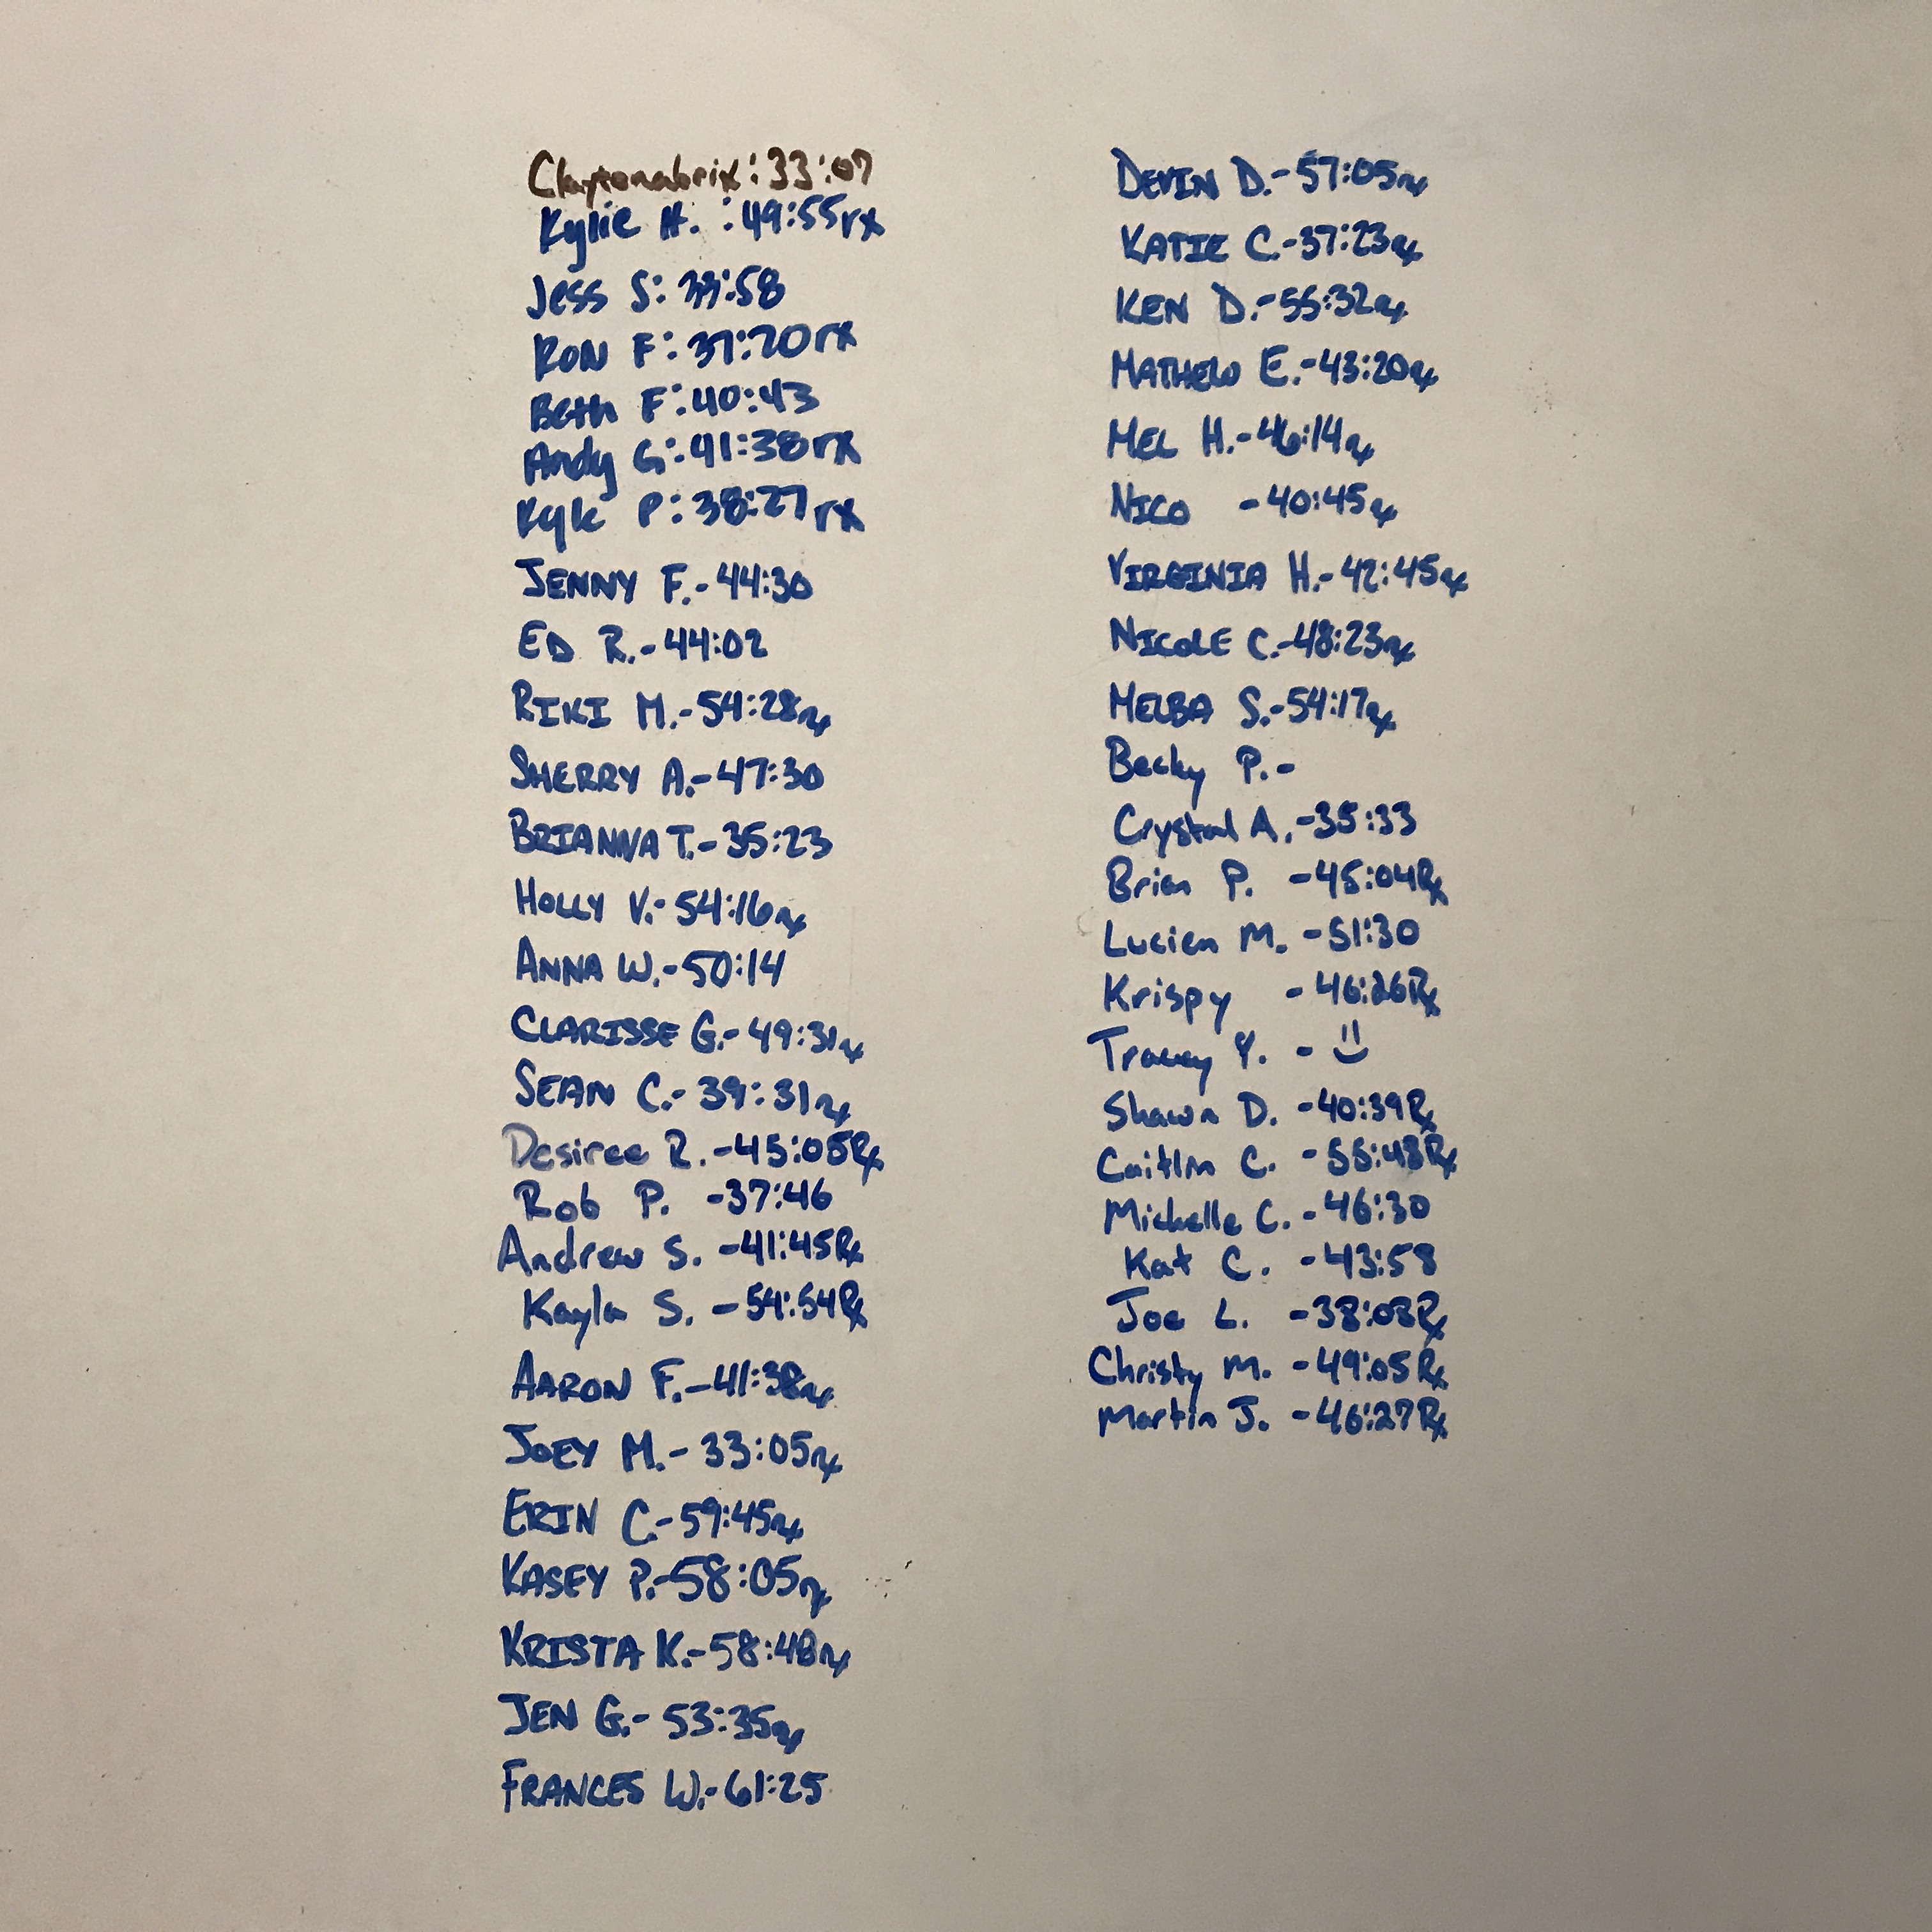 Claytonabrix: 33:07
Kylie H. : 49:55rx
Jess S: 33:58
RON F: 37:20rx
Beth F: 40:43
Andy G: 41:38rx
Kyle P: 38:27rx
JENNY F.- 44:30
ED R.- 44:02
RIKI M.- 54:28rx
SHERRY A.- 47:30
BRIANNA T.- 35:23
HOLLY V.- 54:16rx
ANNA W.- 50:14
CLARISSE G.- 49:31rx
SEAN C.- 39:31rx
Desiree R. -45:05Rx
Rob P. -37:46
Andrew S. -41:45Rx
Kayla S. -54:54Rx
AARON F.-41:38rx
JOEY M.- 33:05rx
ERIN C.- 59:45rx
KASEY P.-58:05rx
KRISTA K.-58:48rx
JEN G.- 53:35rx
FRANCES W.- 61:25
DEVIN D.- 57:05rx
KATIE C.-37:23rx
KEN D.-55:32rx
MATHEW E.-43:20rx
MEL H.-46:14rx
NICO -40:45rx
VIRGINIA H.- 42:45rx
NICOLE C.-48:23rx
MELBA S.-54:17rx
Becky P.-
Crystal A. -35:33
Brian P. -45:04Rx
Lucien M. -51:30
Krispy - 46:26Rx
Tracey Y. -
Shawn D. -40:39Rx
Caitlin C. -55:48Rx
Michelle C. - 46:30
Kat C. -43:58
Joe L. -38:03Rx
Christy M. -49:05Rx
Martin J. -46:27Rx